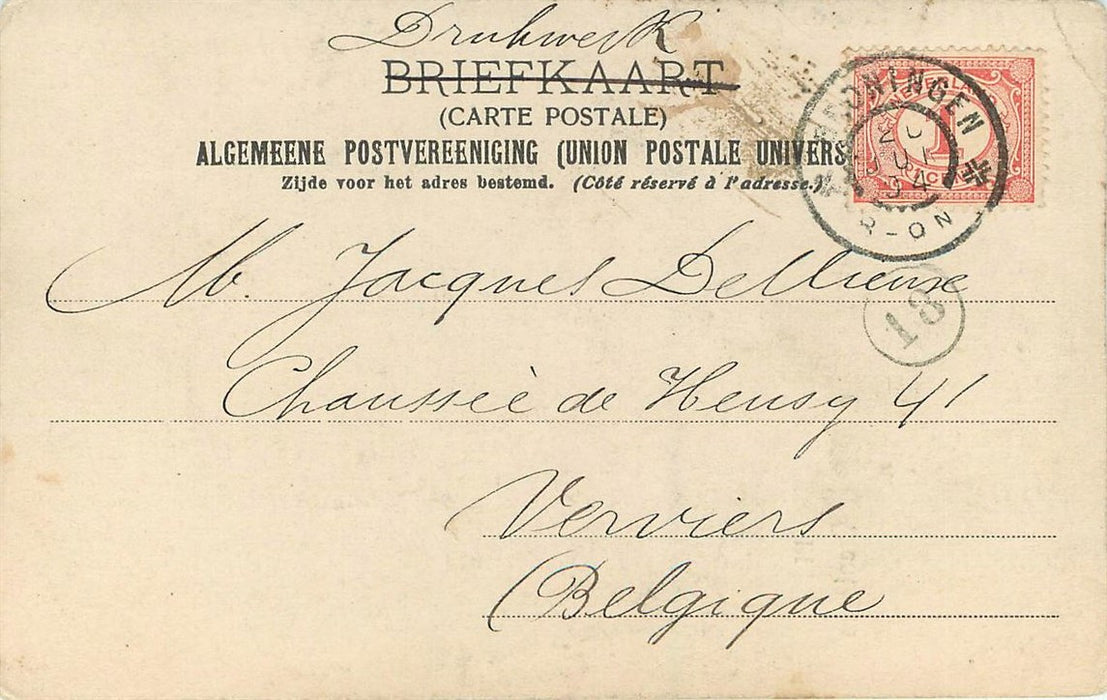 Drukwerk
BRIEFKAART
(CARTE POSTALE)
ALGEMEENE POSTVEREENIGING (UNION POSTALE UNIVERS
Zijde voor het adres bestemd. (Côté réservé à l'adresse.)
GRONINGEN
1
M. Jacques
18
Chaussée de Heusy 41
Verviers
Belgique